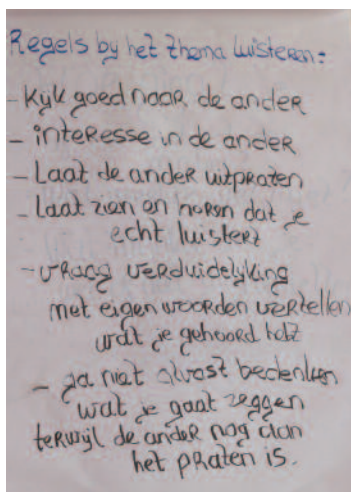 Regels by het thema luisteren:
- Kijk goed naar de ander
- interesse in de ander
- Laat de ander uitpraten
- Laat zien en horen dat je
echt luistert
- vraag verduidelyking
met eigen woorden vertellen
wat je gehoord hebt
- ga niet alvast bedenken
wat je gaat zeggen
terwijl de ander nog aan
het praten is.